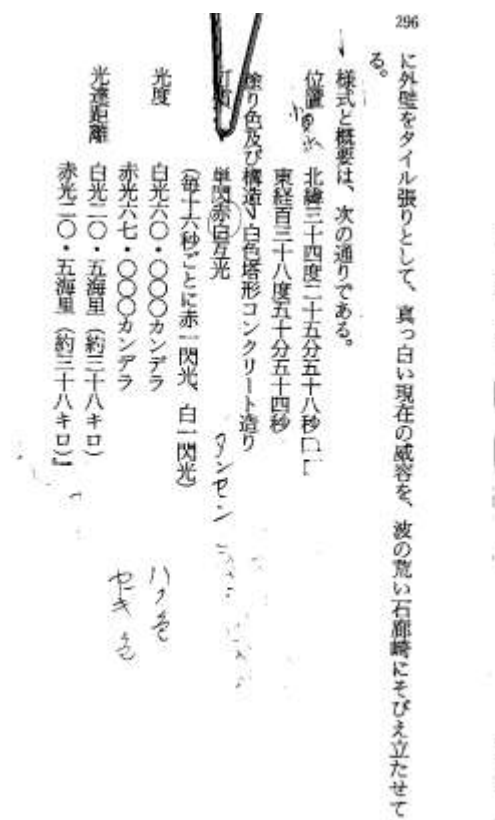 296
に外壁をタイル張りとして、真っ白い現在の威容を、波の荒い石廊崎にそびえ立たせて
る。
様式と概要は、次の通りである。
位置　北緯三十四度二十五分五十八秒
東経百三十八度五十分五十四秒
塗り色及び構造　白色塔形コンクリート造り
単閃赤白互光
タンセン
(毎十六秒ごとに赤一閃光、白一閃光)
光度　白光六〇・〇〇〇カンデラ
ハク色
赤光六七・〇〇〇カンデラ
セキ色
光達距離　白光二〇・五海里(約三十八キロ)
赤光二〇・五海里(約三十八キロ)』